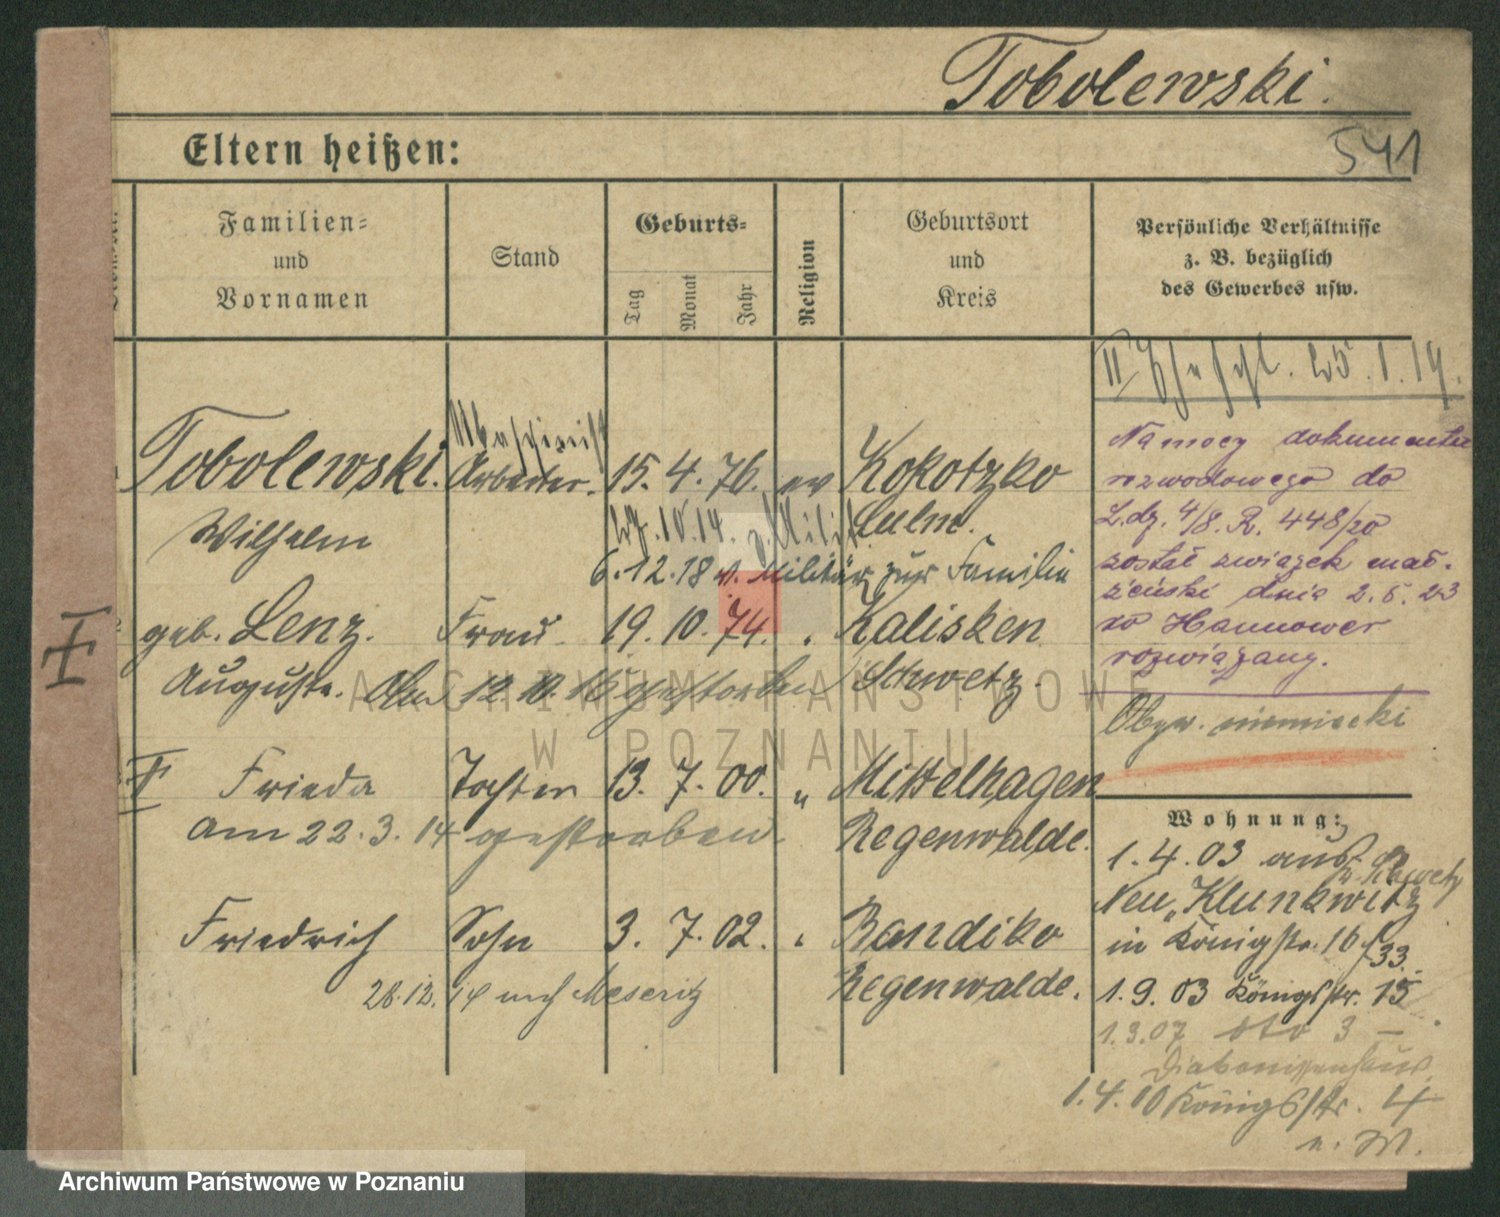 Tobolewski.
541
Eltern heißen:
Familien=
und
Vornamen
Stand
Geburts=
Tag
Monat
Jahr
Religion
Geburtsort
und
Kreis
Persönliche Verhältnisse
z. B. bezüglich
des Gewerbes usw.
Maschinist
Tobolewski. Arbeiter. 15. 4. 76. ev Kokotzko
Wilhelm Culm.
6.12.18 v. Militär zur Familie
geb. Lenz. Frau 19. 10. 74. Kalisken
Auguste. Am 12. 10. 16 gestorben Schwetz.
Frieda Tochter 13. 7. 00. " Mittelhagen
am 22. 3. 14 gestorben. Regenwalde.
Friedrich Sohn 3. 7. 02. Bandiko
28.12.14 nach Meseritz Regenwalde.
II 1.19.
Na mocy dokumentu
rozwodowego do
L.dz. 4/8. R. 448/20
został związek mał.
żeński dnia 2.5.23
w Hannower
rozwiązany.
Obyw. niemiecki
Wohnung:
1.4.03 aus
Neu „Klunkwitz
in Königstr. 16/33.
1.9.03 Königstr. 15
1.3.07 dto 3 –
Diakonissenhaus.
1.4.10 Königstr. 4
n. M.
ARCHIWUM PAŃSTWOWE
W POZNANIU
Archiwum Państwowe w Poznaniu